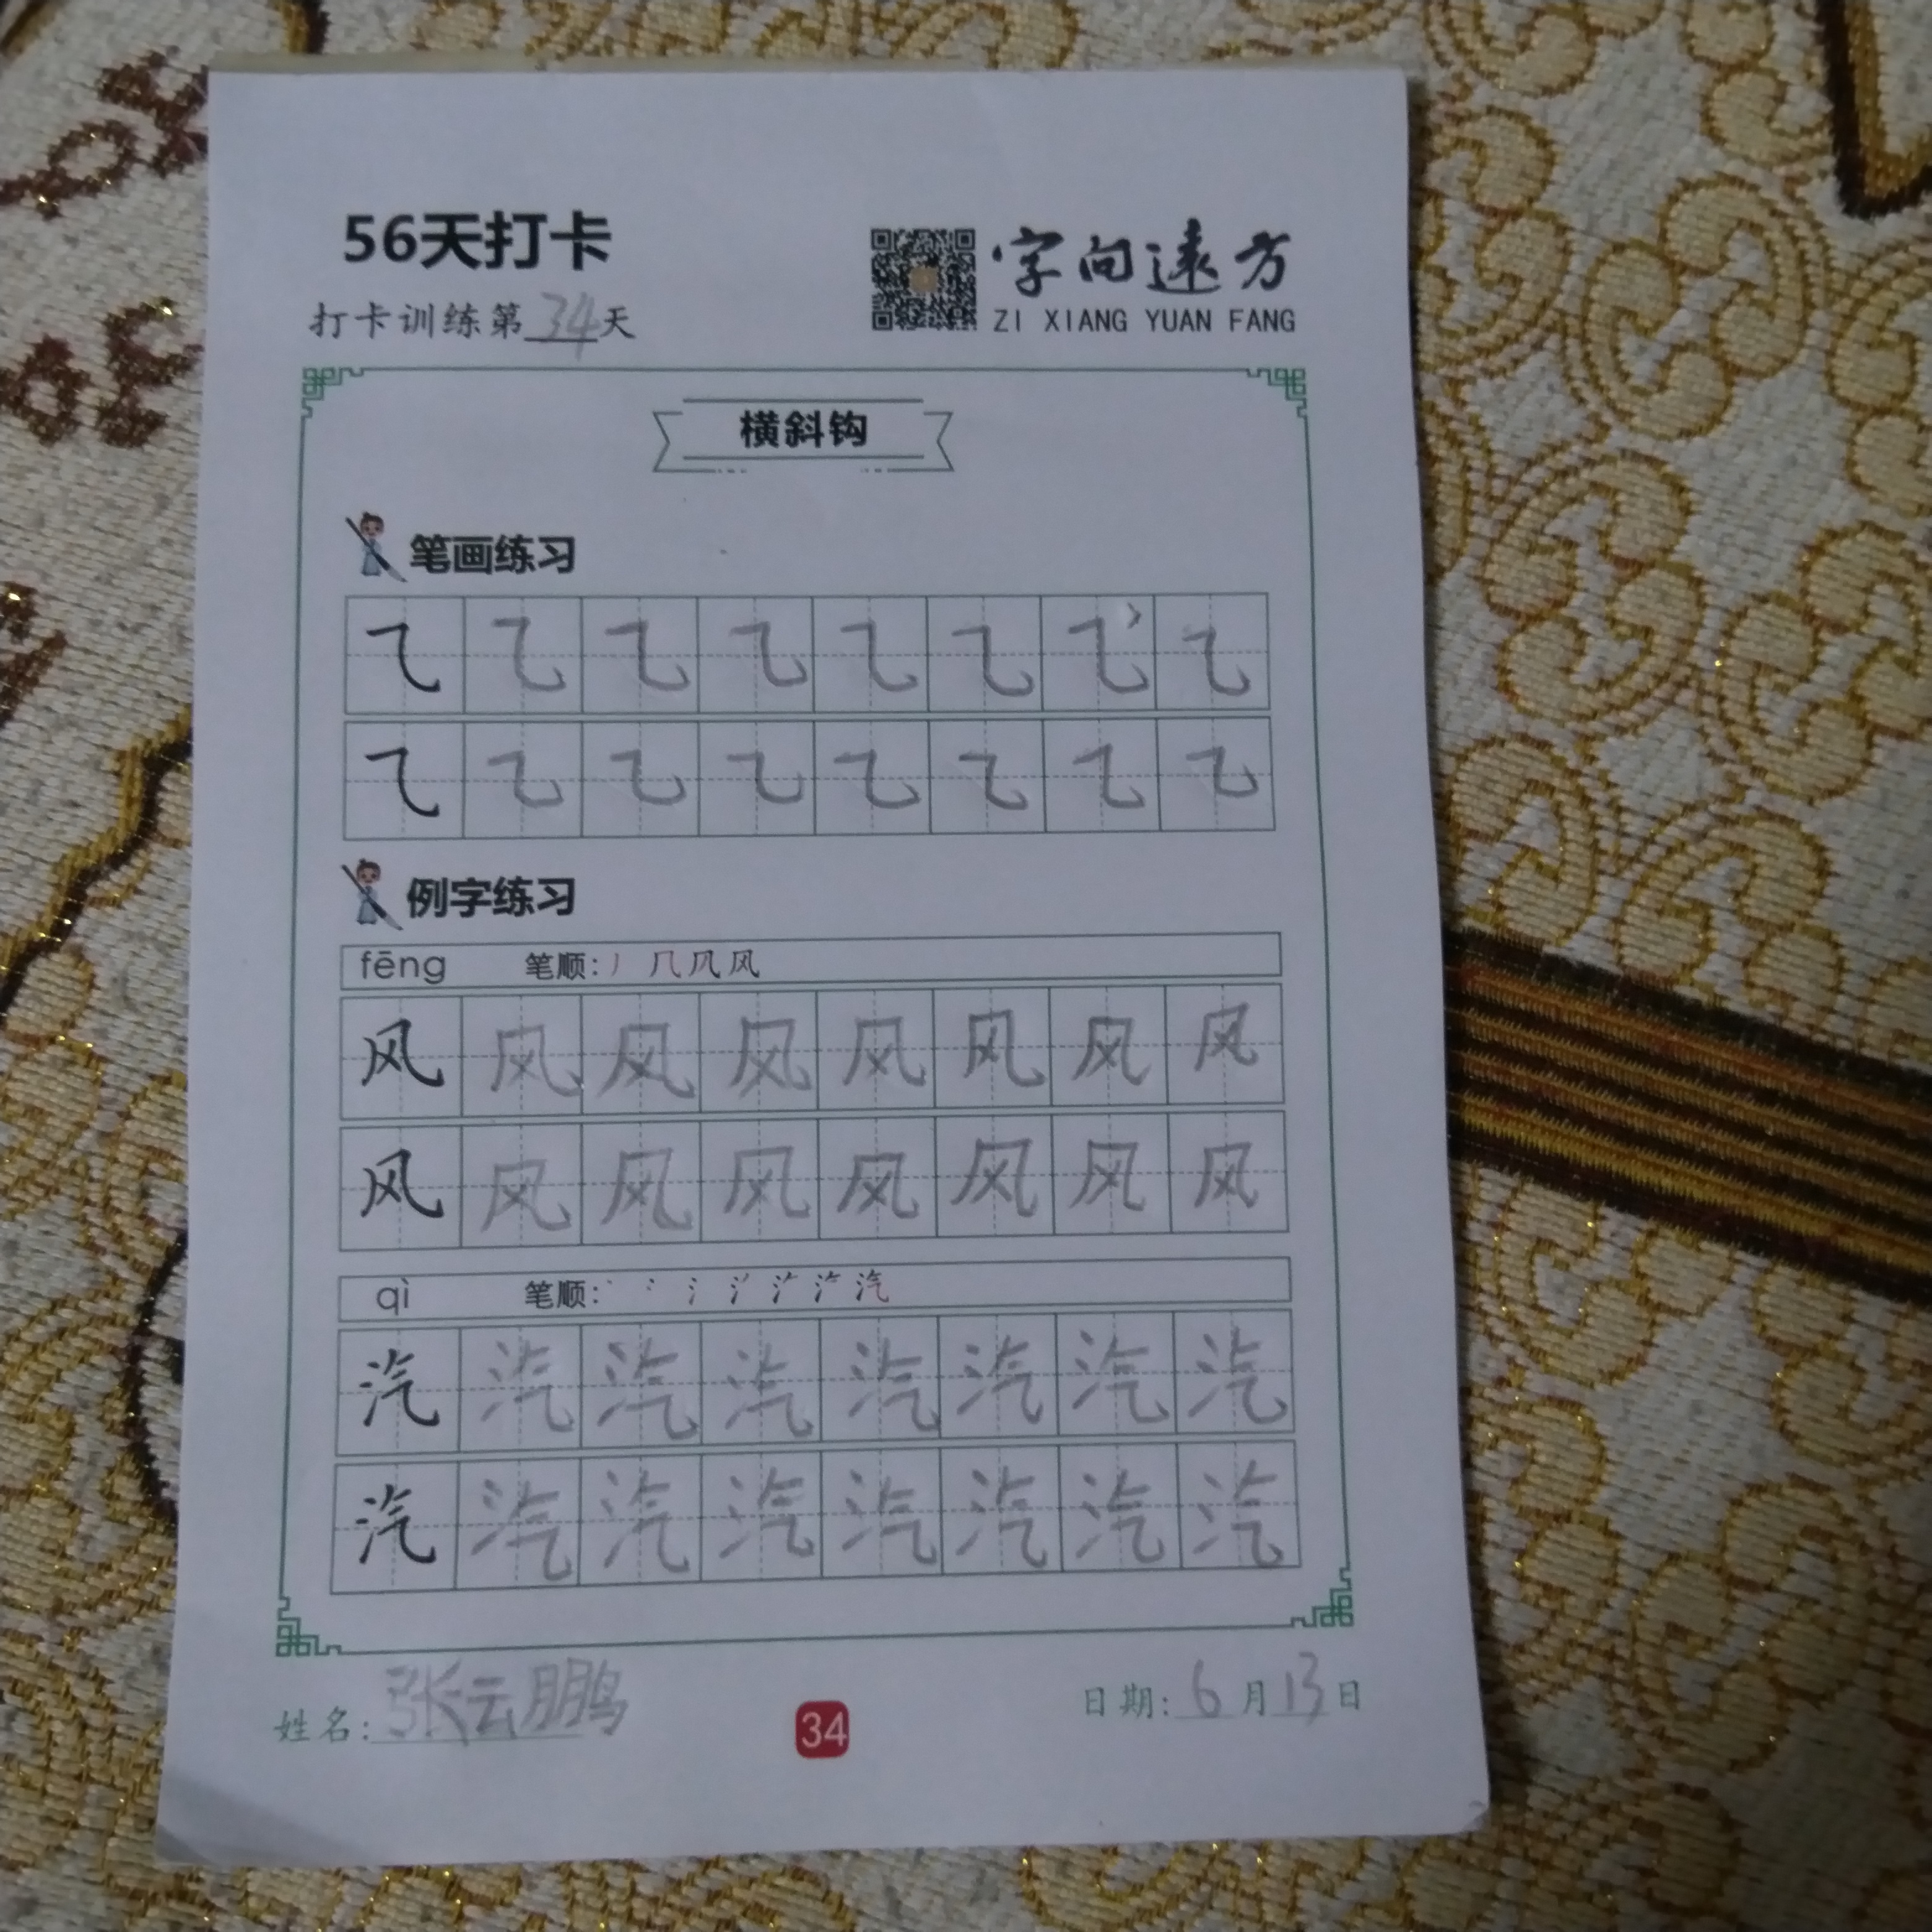 56天打卡
打卡训练第34天
字向遠方
ZI XIANG YUAN FANG
横斜钩
笔画练习
乁 乁 乁 乁 乁 乁 乁 乁
乁 乁 乁 乁 乁 乁 乁 乁
例字练习
fēng 笔顺: 丿 几 凤 风
风 风 风 风 风 风 风 风
风 风 风 风 风 风 风 风
qì 笔顺: 汽
汽 汽 汽 汽 汽 汽 汽 汽
汽 汽 汽 汽 汽 汽 汽 汽
姓名: 张云鹏
34
日期: 6月13日